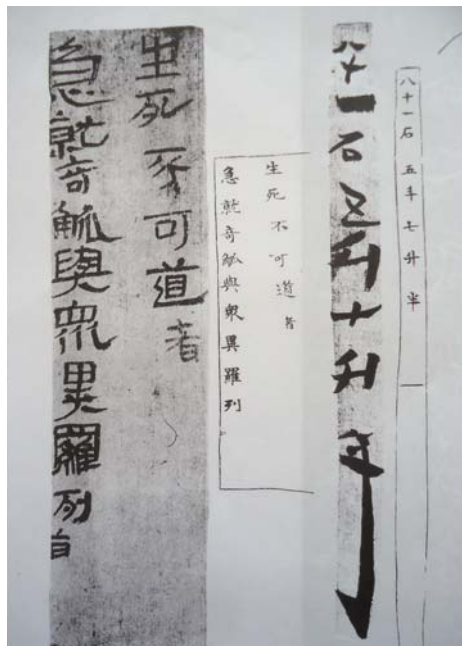 八十一石 五斗七升半
八十一石五斗七升半
生死不可道者
急就奇觚與眾異羅列
生死不可道者
急就奇觚與眾異羅列